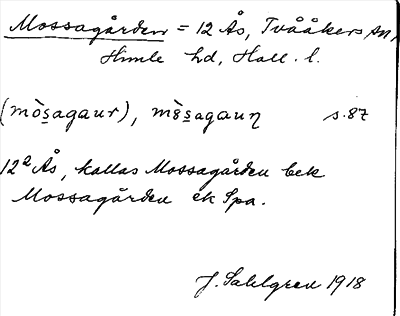 Mossagården = 12 Ås, Tvååkers sn,
Himle hd, Hall. l.
(mòs̱agaur), mòs̱agauꞃ s. 87
12² Ås, kallas Mossagården bek
Mossagården ek Spa.
J. Sahlgren 1918